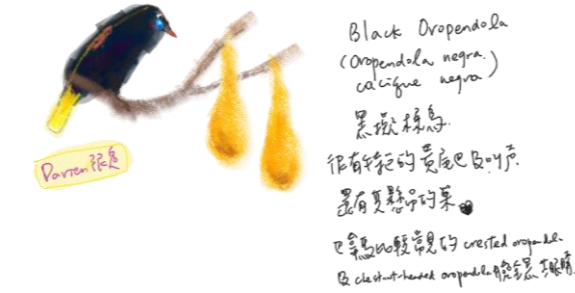 Black Oropendola
(Oropendola negra.
cacique negra)
黑擬椋鳥.
很有特色的黃尾巴及叫声
還有其懸吊的巢
巴拿馬比較常見的 crested oropendola
及 chestnut-headed oropendola
Darren